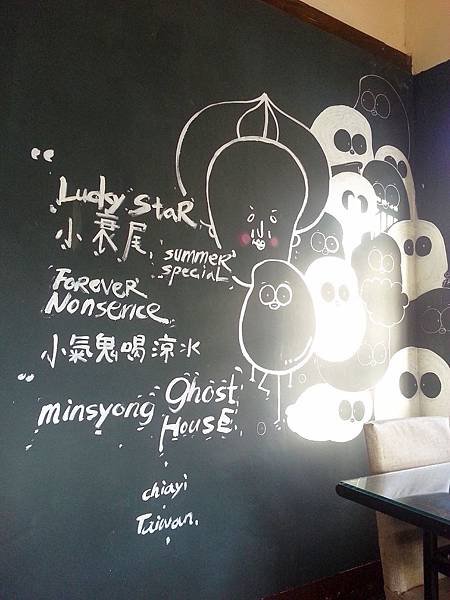 “
Lucky Star
小衰尾
summer
special
Forever
Nonsence
小氣鬼喝涼水
“
minsyong Ghost
House
chiayi
Taiwan